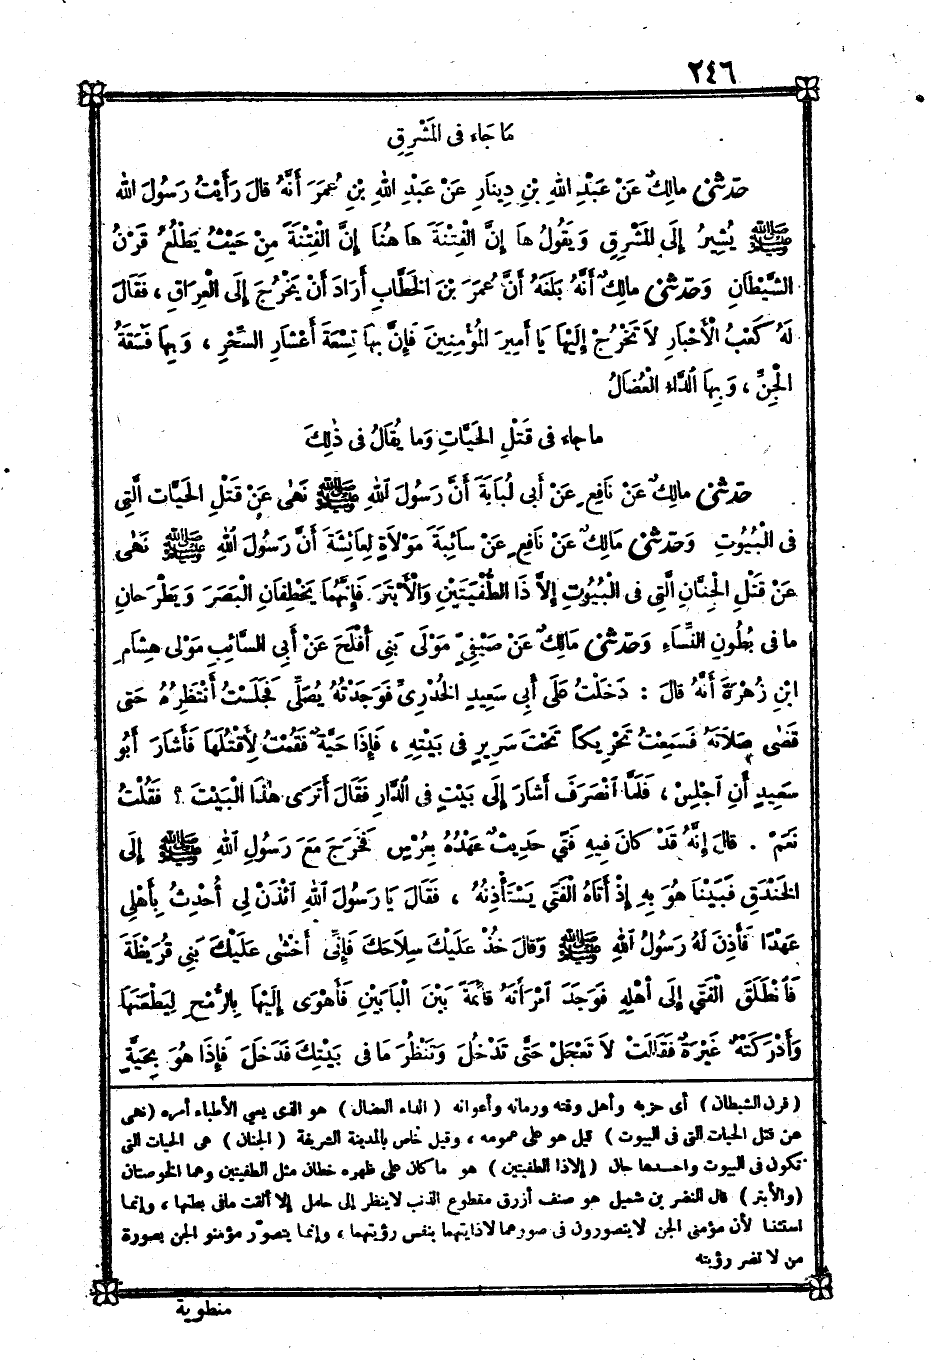 ٢٤٦
مَا جَاءَ فِى الْمَشْرِقِ
حَدَّثَنِى مالِكٌ عَنْ عَبْدِ اللهِ بْنِ دِينارٍ عَنْ عَبْدِ اللهِ بْنِ عُمَرَ أَنَّهُ قالَ رَأَيْتُ رَسُولَ اللهِ
ﷺ يُشِيرُ إِلَى الْمَشْرِقِ وَيَقُولُ ها إِنَّ الْفِتْنَةَ هاهُنا إِنَّ الْفِتْنَةَ مِنْ حَيْثُ يَطْلُعُ قَرْنُ
الشَّيْطانِ وَحَدَّثَنِى مالِكٌ أَنَّهُ بَلَغَهُ أَنَّ عُمَرَ بْنَ الخَطَّابِ أَرَادَ أَنْ يَخْرُجَ إِلَى الْعِرَاقِ ، فَقَالَ
لَهُ كَعْبُ الْأَحْبارِ لاَ تَخْرُجْ إِلَيْها يَا أَمِيرَ الْمُؤْمِنِينَ فَإِنَّ بها تِسْعَةَ أَعْشَارِ السِّحْرِ ، وَبِها فَسَقَةُ
الْجِنِّ ، وَبِهَا الدَّاءُ الْعُضَالُ
ما جاء فى قَتْلِ الْحَيَّاتِ وَما يُقَالُ فى ذٰلِكَ
حَدَّثَنِى مالِكٌ عَنْ نَافِعٍ عَنْ أَبى لُبَابَةَ أَنَّ رَسُولَ اللهِ ﷺ نَهٰى عَنْ قَتْلِ الحَيَّاتِ الَّتِى
فى الْبُيُوتِ وَحَدَّثَنِى مَالِكٌ عَنْ نَافِعٍ عَنْ سَائِبَةَ مَوْلاَةٍ لِعائِشَةَ أَنَّ رَسُولَ اللهِ ﷺ نَهٰى
عَنْ قَتْلِ الْجِنَّانِ الَّتِى فى الْبُيُوتِ إِلاَّ ذَا الطُّفْيَتَيْنِ وَالْأَبْتَرَ فَإِنَّهُما يَخْطِفانِ الْبَصَرَ وَيَطْرَحانِ
ما فى بُطُونِ النِّساءِ وَحَدَّثَنِى مَالِكٌ عَنْ صَيْفِىٍّ مَوْلَى بَنِى أَفْلَحَ عَنْ أَبِى السَّائِبِ مَوْلى هِشامِ
ابْنِ زُهْرَةَ أَنَّهُ قالَ : دَخَلْتُ عَلَى أَبِى سَعِيدٍ الخُدْرِىِّ فَوَجَدْتُهُ يُصَلِّى فَجَلَسْتُ أَنْتَظِرُهُ حَتى
قَضٰى صَلاَتَهُ فَسَمِعْتُ تَحْرِيكاً تَحْتَ سَرِيرٍ فى بَيْتِهِ ، فَإِذَا حَيَّةٌ فَقُمْتُ لِأَقْتُلَها فَأَشَارَ أَبُو
سَعِيدٍ أَنِ اجْلِسْ ، فَلَمَّا انْصَرَفَ أَشارَ إِلَى بَيْتٍ فى الدَّارِ فَقالَ أَتَرَى هٰذَا الْبَيْتَ ؟ فَقُلْتُ
نَعَمْ . قالَ إِنَّهُ قَدْ كانَ فِيهِ فَتًى حَدِيثُ عَهْدٍ بِعُرْسٍ فَخَرَجَ مَعَ رَسُولِ اللهِ ﷺ إِلَى
الخَنْدَقِ فَبَيْنَا هُوَ بِهِ إِذْ أَتَاهُ الْفَتَى يَسْتَأْذِنُهُ ، فَقَالَ يَا رَسُولَ اللهِ ائْذَنْ لِى أُحْدِثُ بِأَهْلِى
عَهْدًا فَأَذِنَ لَهُ رَسُولُ اللهِ ﷺ وَقالَ خُذْ عَلَيْكَ سِلاَحَكَ فَإِنِّى أَخْشٰى عَلَيْكَ بَنِى قُرَيْظَةَ
فَانْطَلَقَ الْفَتى إِلَى أَهْلِهِ فَوَجَدَ امْرَأَتَهُ قائِمَةً بَيْنَ الْبَابَيْنِ فَأَهْوَى إِلَيْها بِالرُّمْحِ لِيَطْعَنَها
وَأَدْرَكَتْهُ غَيْرَةٌ فَقَالَتْ لاَ تَعْجَلْ حَتَّى تَدْخُلَ وَتَنْظُرَ مَا فى بَيْتِكَ فَدَخَلَ فَإِذَا هُوَ بِحَيَّةٍ
( قرن الشيطان ) أى حزبه وأهل وقته وزمانه وأعوانه ( الداء العضال ) هو الذى يعي الأطباء أمره (نهى
عن قتل الحيات التى فى البيوت ) قيل هو على عمومه ، وقيل خاص بالمدينة الشريفة ( الجنان ) هى الحيات التى
تكون فى البيوت واحدها جان ( إلاذا الطفيتين ) هو ما كان على ظهره خطان مثل الطفيتين وهما الخوصتان
(والأبتر ) قال النضر بن شميل هو صنف أزرق مقطوع الذنب لا ينظر إلى حامل إلا ألقت مافى بطنها ، وإنما
استثنا لأن مؤمنى الجن لا يتصورون فى صورهما لاذايتهما بنفس رؤيتهما ، وإنما يتصوّر مؤمنو الجن بصورة
من لا تضر رؤيته
منطوية